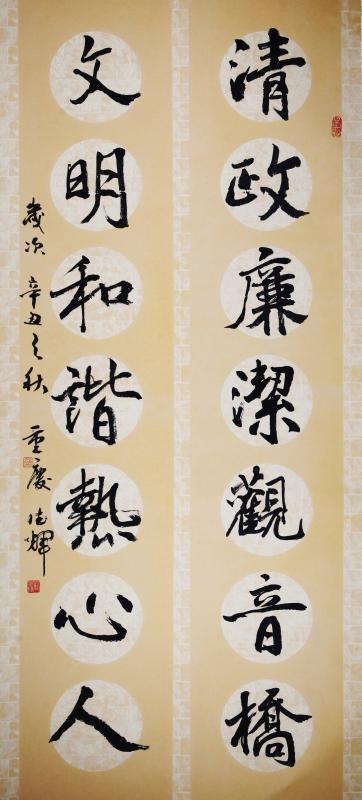 清政廉潔觀音橋
文明和諧熱心人
歲次辛丑之秋 重慶 德輝